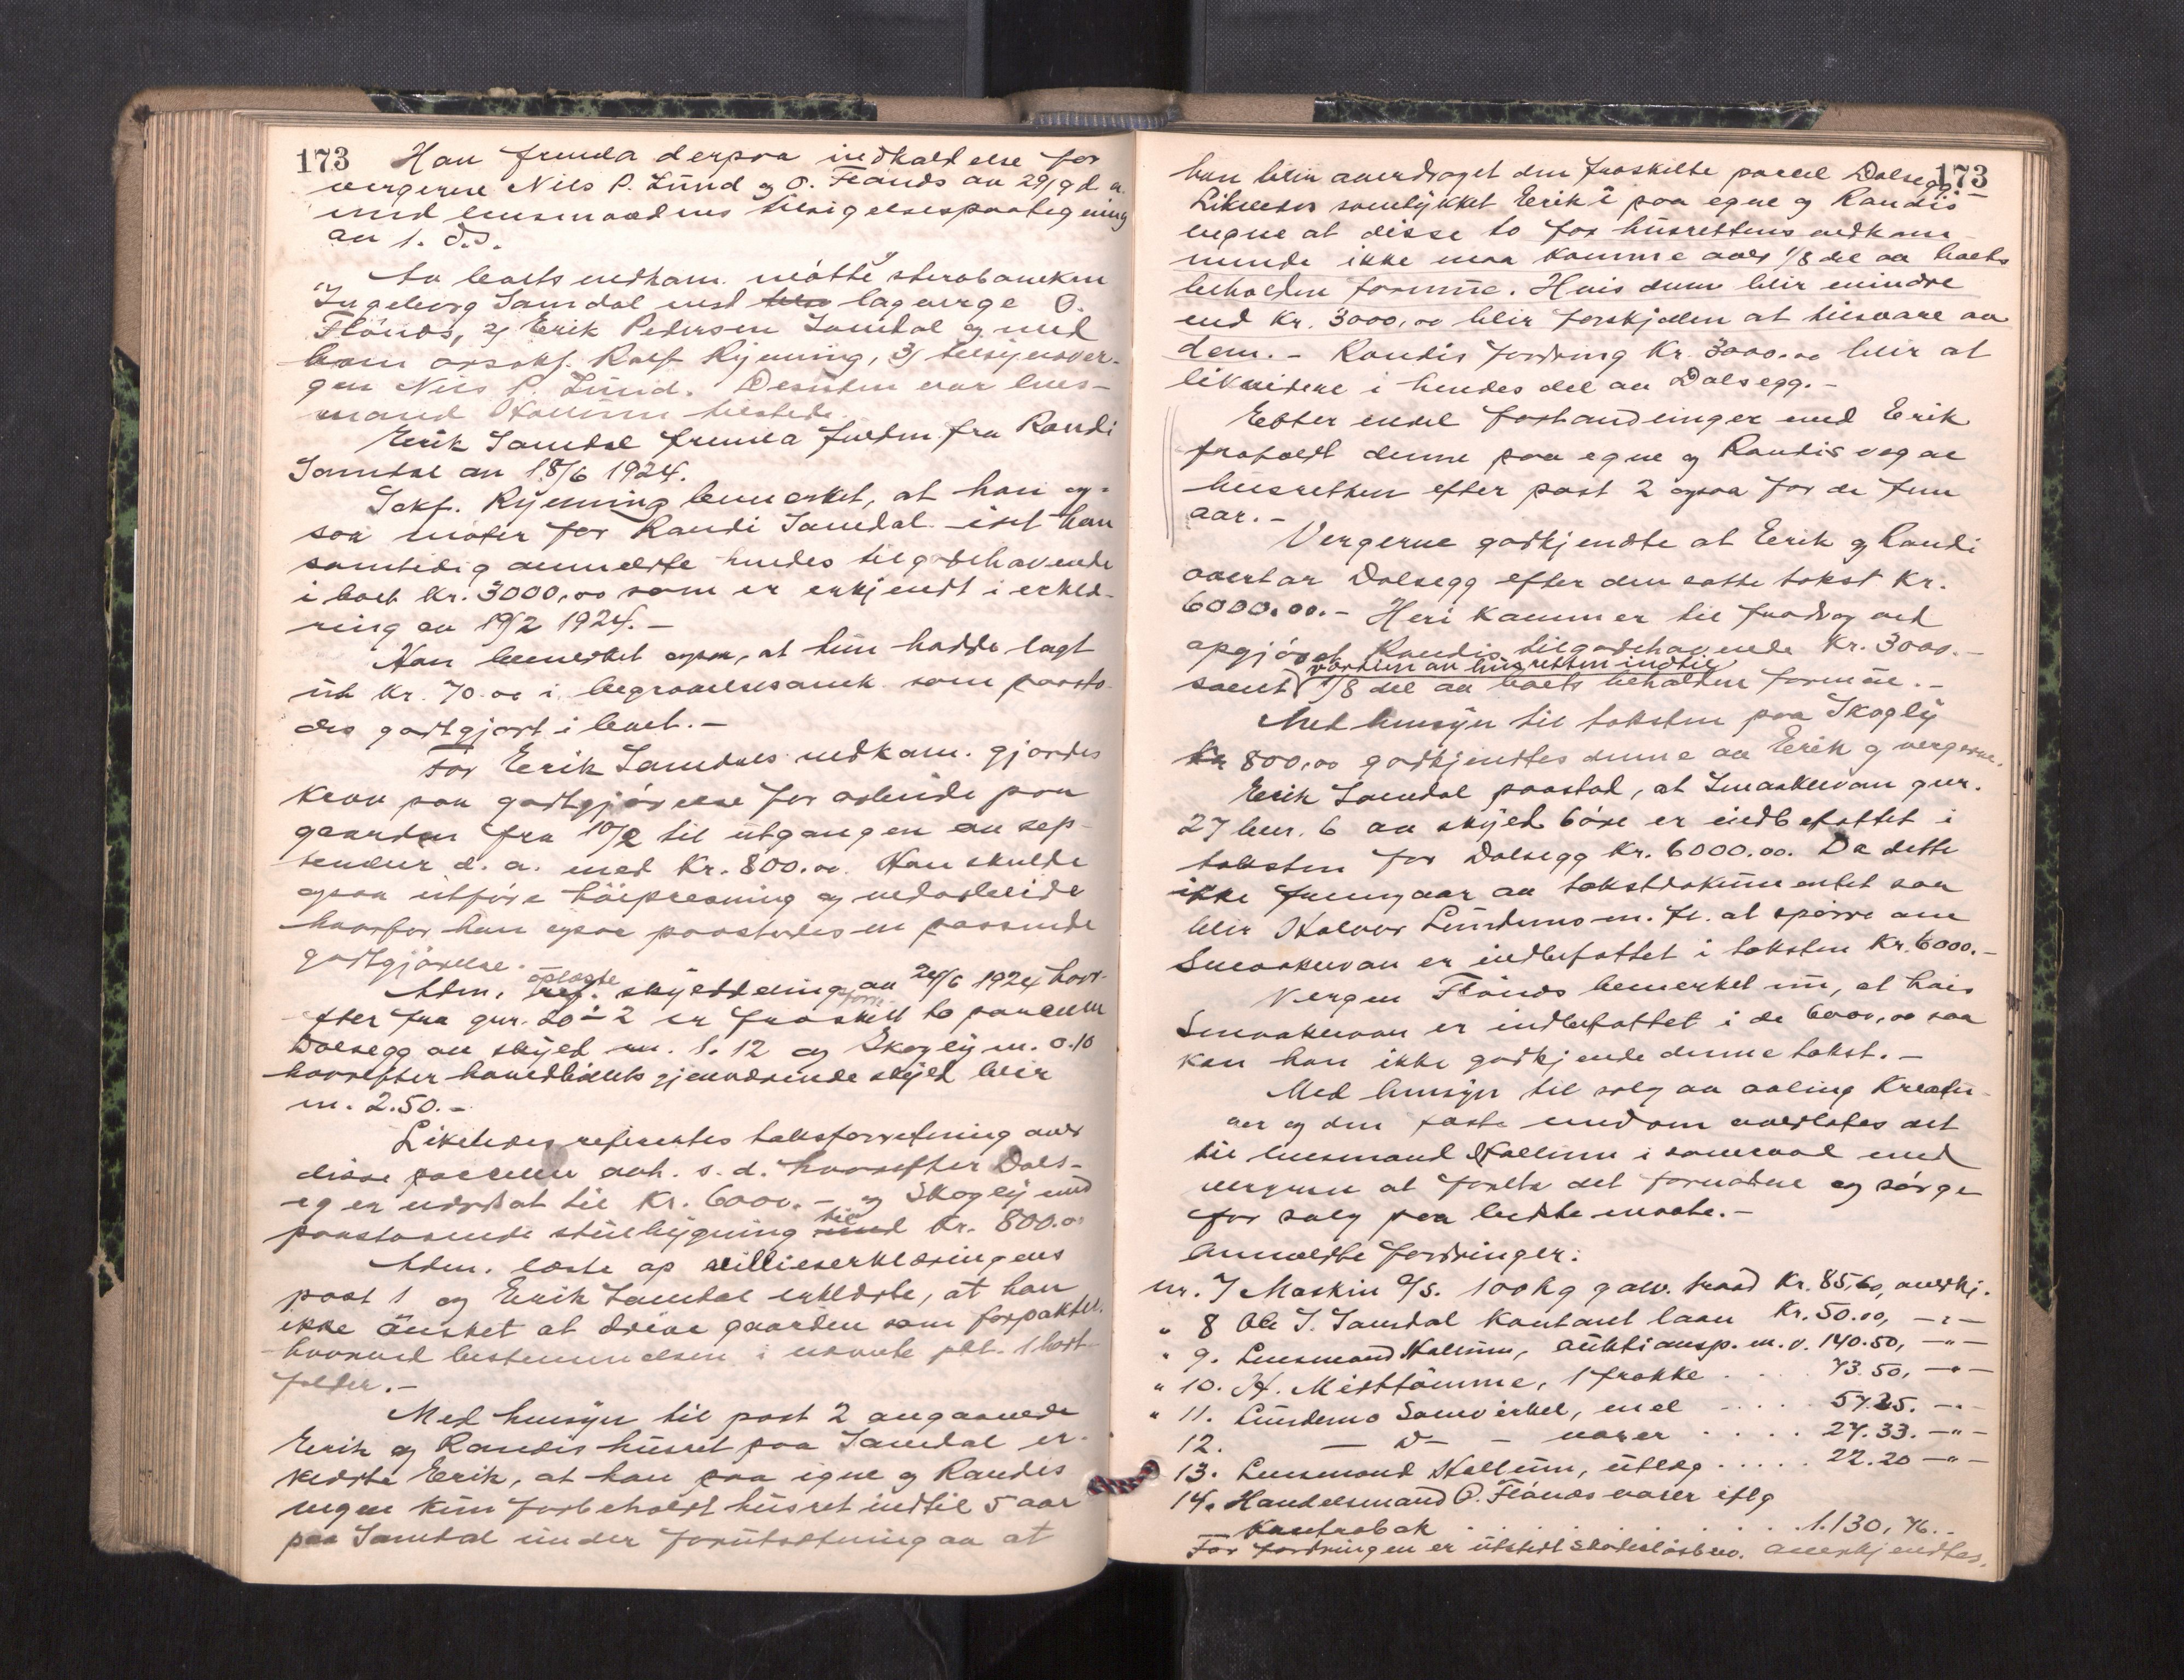 173 Han fremla derpaa indkaldelse for
vergerne Nils P. Lund og O. Flønes av 29/9 d. a.
med lensmandens tilsigelsespaategning
av 1. ds.
Av boets vedkom. møtte 1) sterbo enken
Ingeborg Samdal med lagverge O.
Flønes, 2) Erik Pedersen Samdal og med
ham orsakf. Rolf Rjenning, 3) tilsynsver-
gen Nils P. Lund. Desuten var lens-
mand Hallem tilstede.
Erik Samdal fremla fuldm. fra Randi
Samdal av 18/6 1924.
Sakf. Rjenning bemerket, at han og-
saa møter for Randi Samdal idet han
samtidig anmeldte hendes tilgodehavende
i boet kr. 3000,00 som er erkjendt i erklæ-
ring av 19/2 1924.-
Han bemerket ogsaa, at hun hadde lagt
ut kr. 70.00 i begravelsesomk. som paasto-
des godtgjort i boet.-
For Erik Samdals vedkom. gjordes
krav paa godtgjørelse for arbeide paa
gaarden fra 10/2 til utgangen av sep-
tember d. a. med kr. 800.00. Han skulde
ogsaa utføre høipresning og vedarbeide
hvorfor han ogsaa paastodes en passende
godtgjørelse.
Adm. oplæste skylddeling av 24/6 1924 hvor-
efter fra gnr. 20 - 2 er fraskilt to parceller
Dalsegg av skyld m. 1.12 og Skogly m. 0.10
hvorefter hovedbølets gjenværende skyld blir
m. 2.50.-
Likeledes refereertes takstforretning over
disse parceller avh. s. d. hvorefter Dals-
eg er verdsat til kr. 6000.- og Skogly med
paastaaende stuebygning til kr. 800.00
Adm. læste op villieserklæringens
post 1 og Erik Samdal erklærte, at han
ikke ønsket at drive gaarden som forpakter.
hvorved bestemmelsen i nævnte pkt. 1 bort-
falder.-
Med hensyn til post 2 angaaende
Erik og Randis husret paa Samdal er-
klærte Erik, at han paa egne og Randis
vegne kun forbeholdt husret indtil 5 aar
paa Samdal under forutsetning av at
173
han blir overdraget den fraskilte parcel Dalsegg.-
Likeledes samtykket Erik i paa egne og Randis
vegne at disse to for husrettens vedkom-
mende ikke maa komme over 1/8 del av boets
beholdne formue. Hvis denne blir mindre
end kr. 3000,00 blir forskjellen at tilsvare av
dem.- Randis fordring kr. 3000.00 blir at
likvidere i hendes del av Dalsegg.-
Efter endel forhandlinger med Erik
frafaldt denne paa egne og Randis vegne
husretten efter post 2 ogsaa for de fem
aar.-
Vergerne godkjendte at Erik og Randi
overtar Dalsegg efter den satte takst kr.
6000.00.- Heri kommer til fradrag ved
opgjøret Randis tilgodehavende kr. 3000.-
værdien av husretten indtil
samt 1/8 del av boets beholdne formue.-
Med hensyn til taksten paa Skogly
kr 800,00 godkjendtes denne av Erik og vergerne.
Erik Samdal paastod, at Smaakervan gnr.
27 bnr. 6 av skyld 6 øre er indbefattet i
taksten for Dalsegg kr. 6000.00. Da dette
ikke fremgaar av takstdokumentet saa
blir Halvor Lundemo m. fl. at spørre om
Smaakervan er indbefattet i taksten kr. 6000.-
Vergen Flønes bemerket nu, at hvis
Smaakervan er indbefattet i de 6000,00 saa
kan han ikke godkjende denne takst.-
Med hensyn til salg av avling kreatu-
rer og den faste eiendom overlates det
til lensmand Hallem i samraad med
vergerne at foreta det fornødne og sørge
for salg paa bedste maate.-
Anmeldte fordringer:
nr. 7 Maskin A/S. 100 kg galv. traad kr. 85,60, anerkj.
" 8 Ole J. Samdal kontant laan kr. 50.00, -"-
" 9. Lensmand Hallem, auktionsp. m. v. 140.50, -"-
" 10. H. Midttømme, 1 frakke . . . 73.50, -"-
" 11. Lundemo Samvirkel, mel . . . . 57.25. -"-
12. - D- - varer . . . . 27.33. -"-
13. Lensmand Hallem, utlæg . . . . 22.20 -"-
14. Handelsmand O. Flønes varer iflg
kontrabok . . . . . . . . 1.130,76.-
For fordringen er utstedt skadesløsbrev. Anerkjendtes.